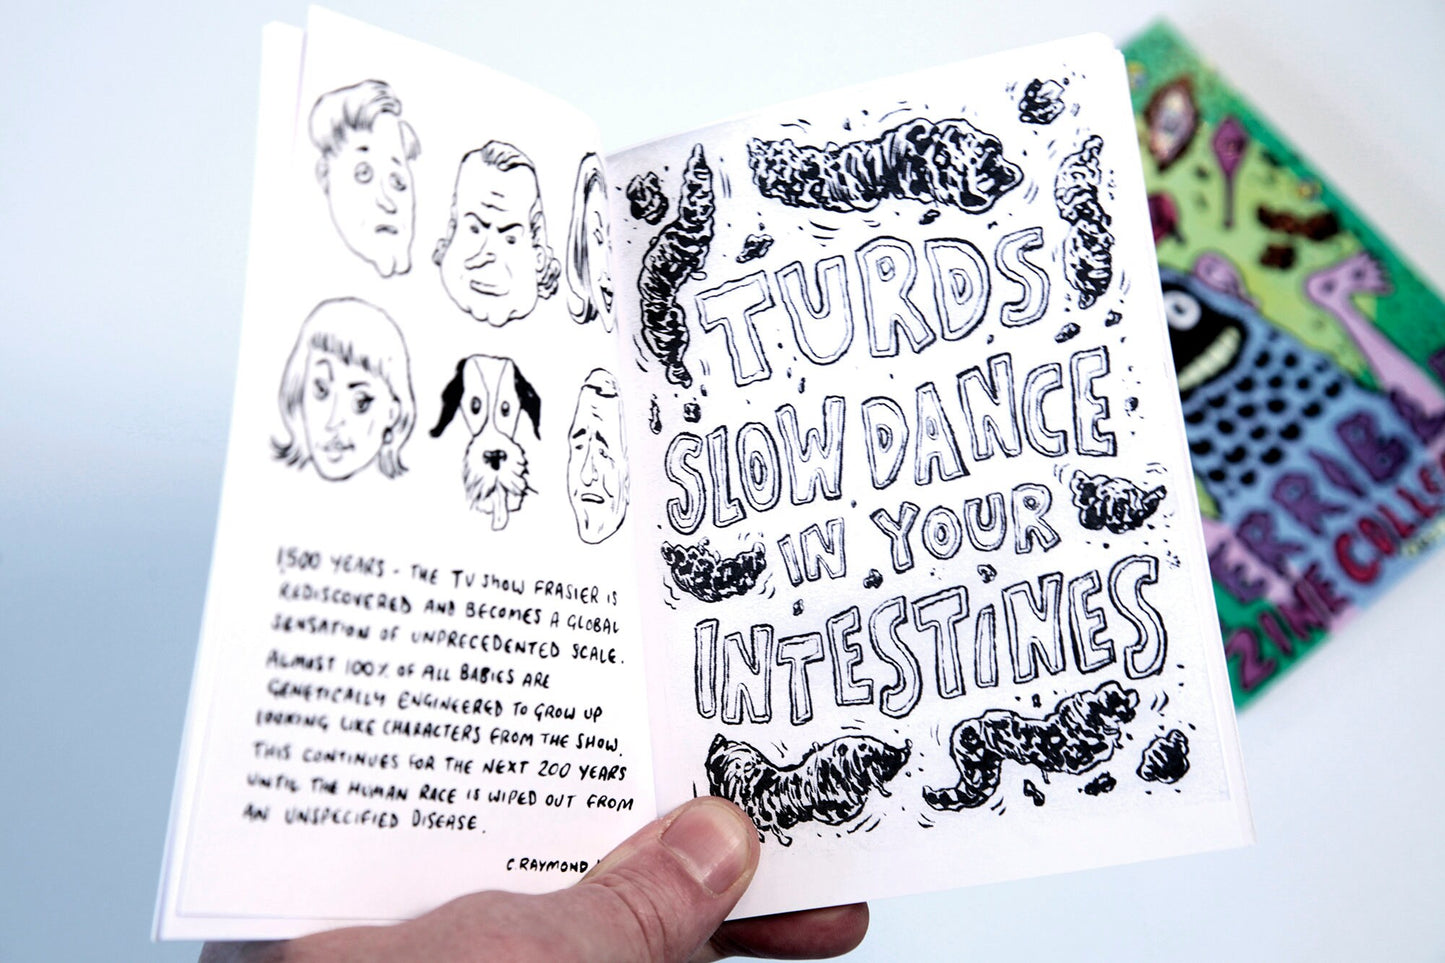 1,500 YEARS - THE TV SHOW FRASIER IS
REDISCOVERED AND BECOMES A GLOBAL
SENSATION OF UNPRECEDENTED SCALE.
ALMOST 100% OF ALL BABIES ARE
GENETICALLY ENGINEERED TO GROW UP
LOOKING LIKE CHARACTERS FROM THE SHOW.
THIS CONTINUES FOR THE NEXT 200 YEARS
UNTIL THE HUMAN RACE IS WIPED OUT FROM
AN UNSPECIFIED DISEASE.
C. RAYMOND
TURDS
SLOW DANCE
IN YOUR
INTESTINES
ZINE